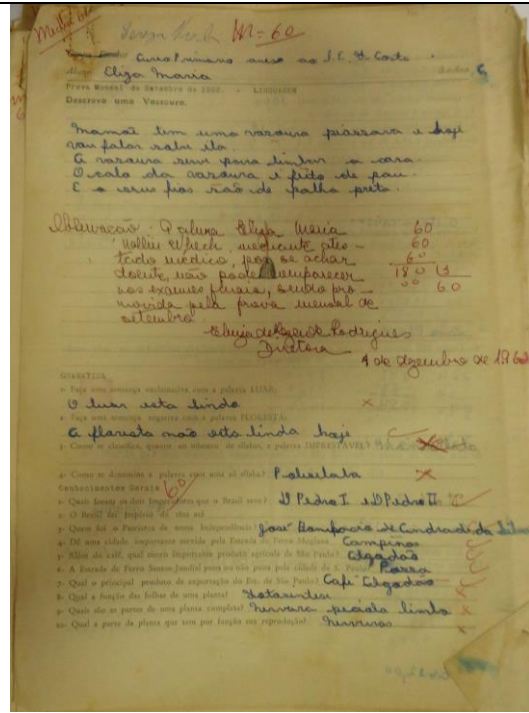 M=60
Curso Primario anexo ao I.E. de Costo
Aluno Eliza Maria
Prova Mensal de Setembro de 1962. - LINGUAGEM
Descreva uma Vassoura.
mamãe tem uma vasoura piassava e hoje
vou falar sobre ela.
A vasoura serve para limbar a casa.
O cabo da vasoura é feito de pau.
E o seus fios são de palha preta.
Observação: A aluna Eliza Maria 60
mediante ates- 60
tado médico, por se achar 60
doente, não pode comparecer 180 3
aos exames finais, sendo pro- 00 60
movida pela prova mensal de
setembro.
Rodrigues
Diretora
4 de dezembro de 1962
GRAMÁTICA
1- Faça uma sentença exclamativa com a palavra LUAR.
O luar esta lindo
2- Faça uma sentença negativa com a palavra FLORESTA.
A floresta não esta linda hoje
3- Como se classifica, quanto ao número de sílabas, a palavra IMPRESTÁVEL?
4- Como se denomina a palavra com uma só sílaba? Polissilaba
Conhecimentos Gerais 60
1- Quais foram os dois Imperadores que o Brasil teve? D Pedro I e D Pedro II
2- O Brasil
3- Quem foi o Patriarca de nossa Independência? José Bonifacio de Andrade da Silva
4- Dê uma cidade importante servida pela Estrada de Ferro Mogiana. Campinas
5- Além do café, qual outro importante produto agrícola de São Paulo? Algodão
6- A Estrada de Ferro Santos-Jundiaí passa ou não pela cidade de S. Paulo? Passa
7- Qual o principal produto de exportação do Est. de São Paulo? Café Algodão
8- Qual a função das folhas de uma planta?
9- Quais são as partes de uma planta completa? Nervura peciolo limbo
10- Qual a parte da planta que tem por função sua reprodução? Nervuras